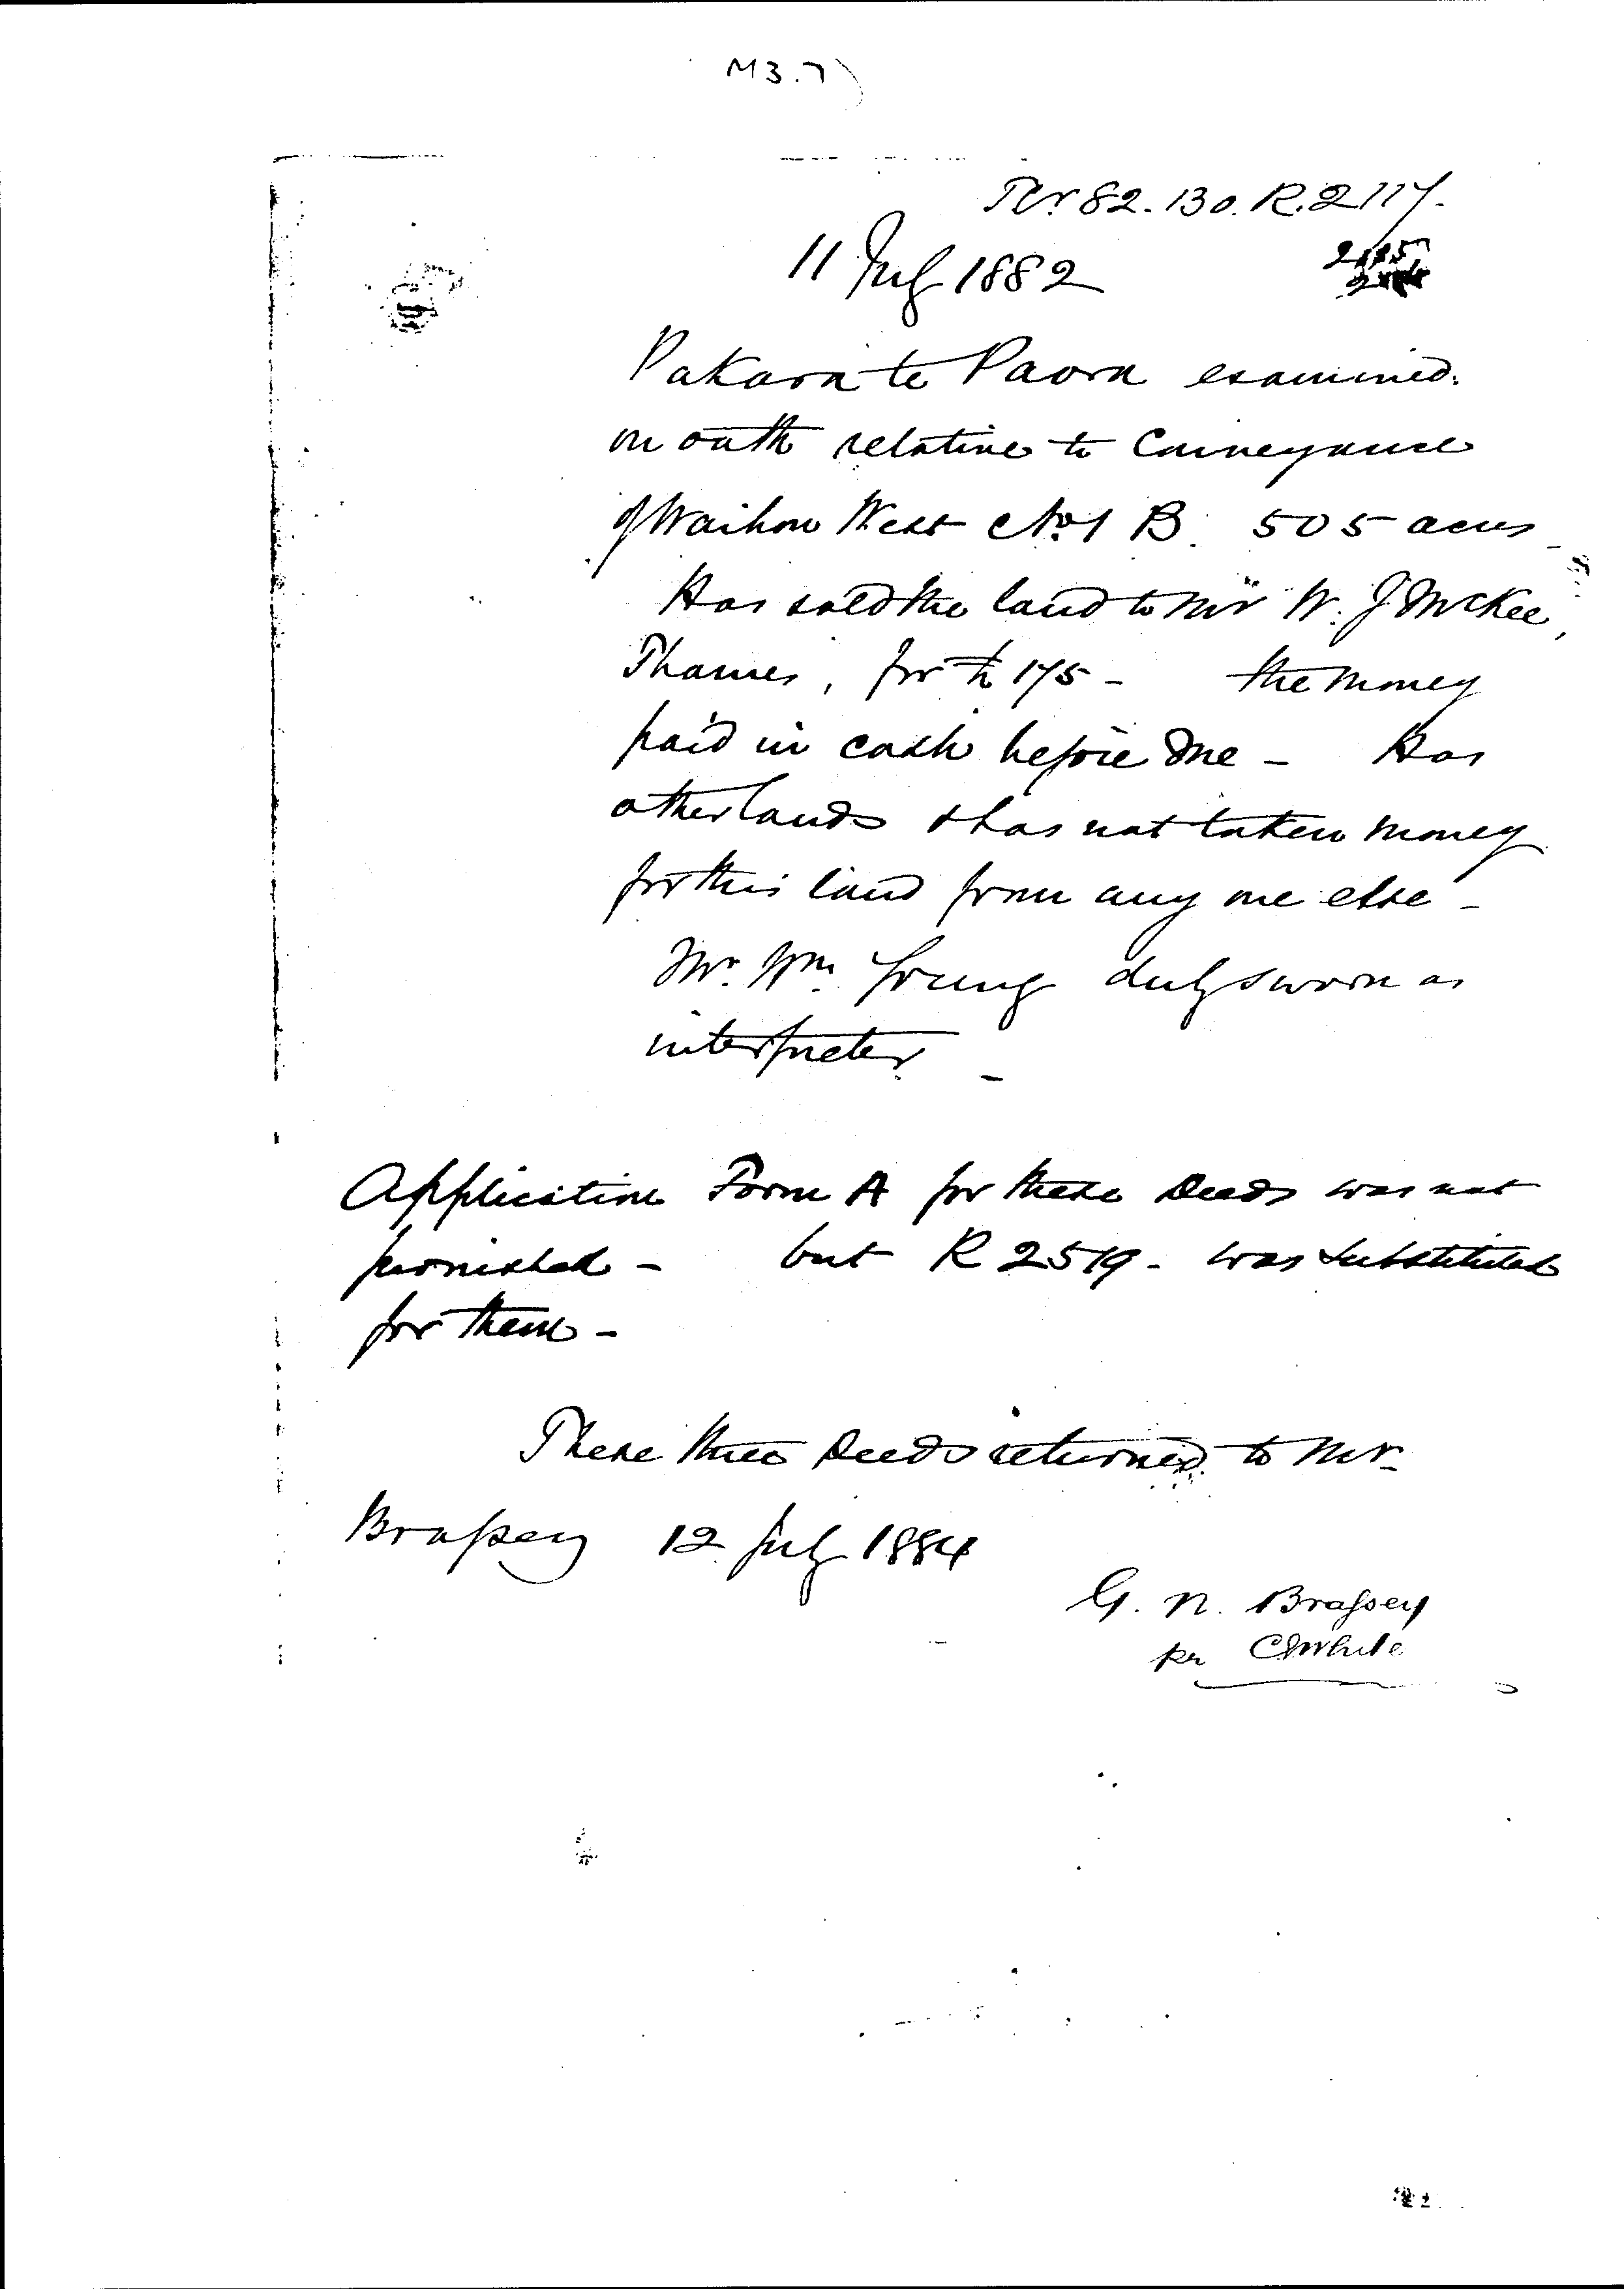 M3.7)
Tr. 82. 130. R. 2117.
2115
11 July 1882
Pakara te Paora examined
on oath relative to Conveyance
of Waihou West No 1 B. 505 acres
Has sold the land to Mr W. J McKee,
Thames, for £175 - the money
paid in cash before me - Has
other lands & has not taken money
for this land from any one else -
Mr. Wm. Young duly sworn as
interpreter -
Application Form A for these Deeds was not
furnished - but R 2519 - was substituted
for them -
These three Deeds returned to Mr.
Brassey 12 July 1884
G. N. Brassey
per CWhite